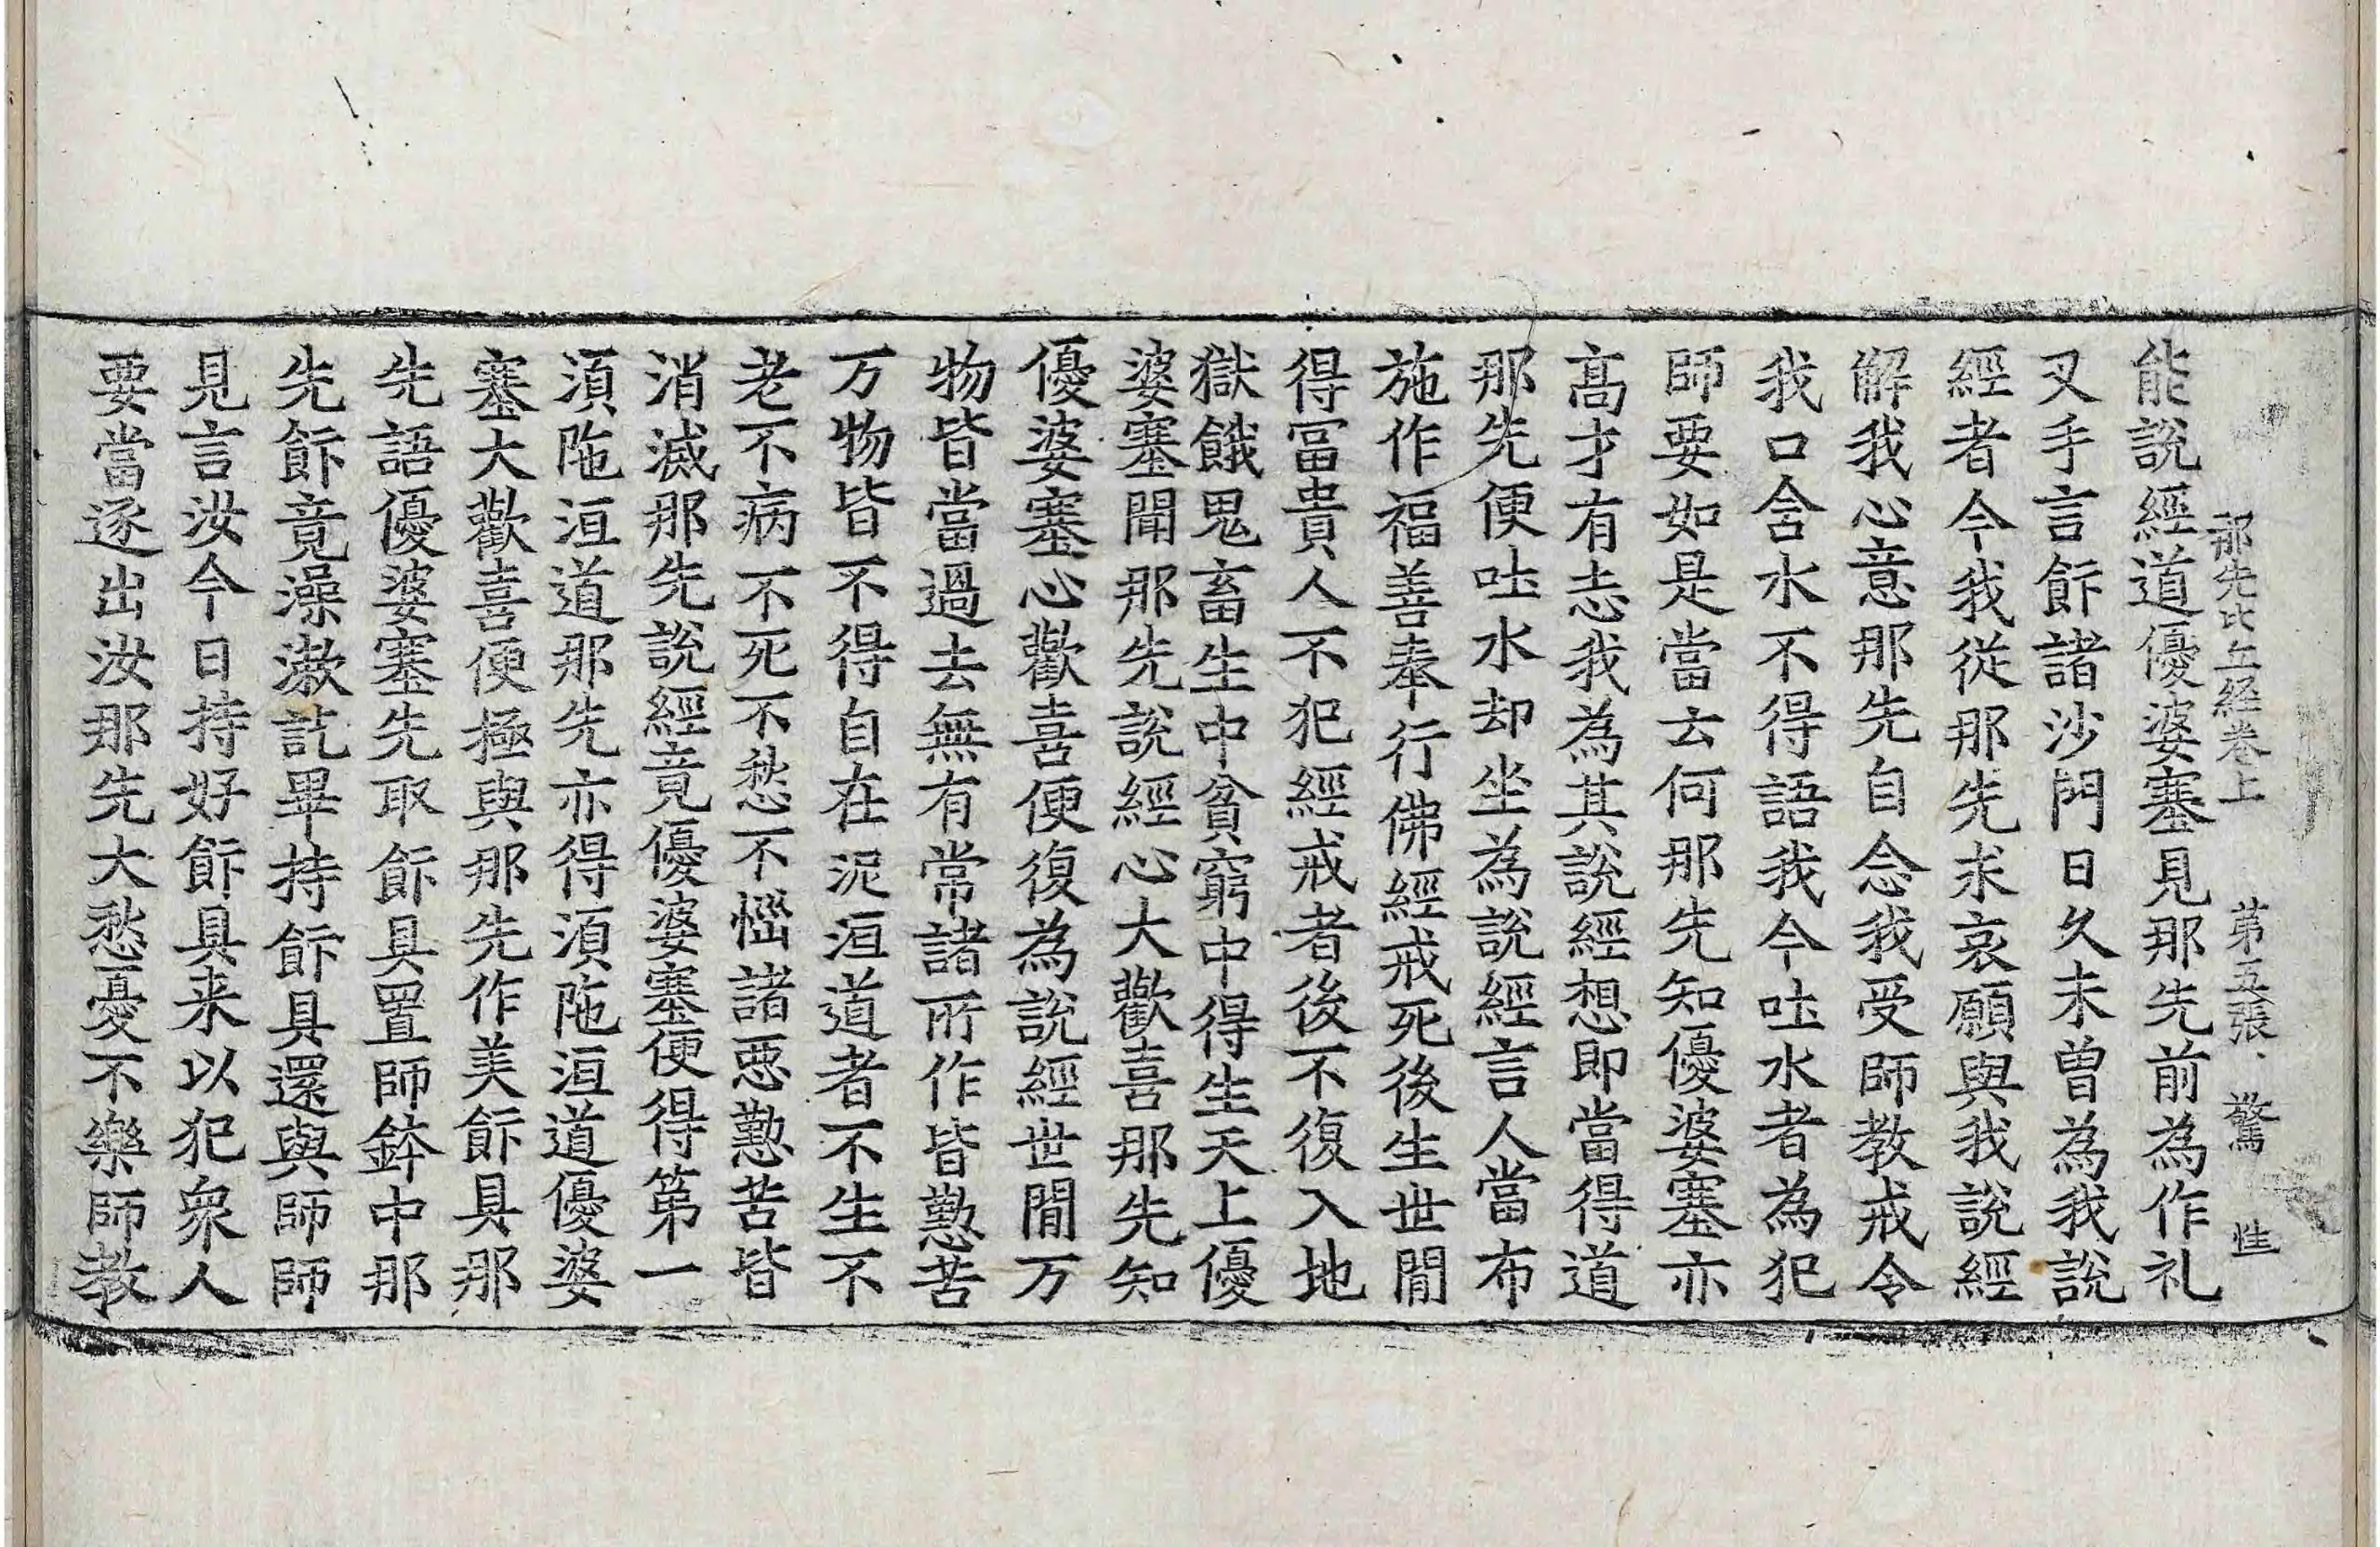 那先比丘経卷上　第五張　驚　性
能說經道優婆塞見那先前為作礼
叉手言飯諸沙門日久未曽為我說
經者今我從那先求哀願與我說經
解我心意那先自念我受師教戒令
我口含水不得語我今吐水者為犯
師要如是當云何那先知優婆塞亦
高才有志我為其說經想即當得道
那先便吐水却坐為說經言人當布
施作福善奉行佛經戒死後生世間
得冨貴人不犯經戒者後不復入地
獄餓鬼畜生中貧窮中得生天上優
婆塞聞那先說經心大歡喜那先知
優婆塞心歡喜便復為說經世間万
物皆當過去無有常諸所作皆懃苦
万物皆不得自在泥洹道者不生不
老不病不死不愁不惱諸惡懃苦皆
消滅那先說經竟優婆塞便得第一
須陁洹道那先亦得須陁洹道優婆
塞大歡喜便極與那先作美飯具那
先語優婆塞先取飯具置師鉢中那
先飯竟澡漱訖畢持飯具還與師師
見言汝今日持好飯具来以犯衆人
要當逐出汝那先大愁憂不樂師教